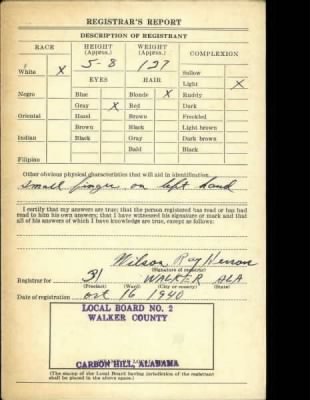 REGISTRAR'S REPORT
DESCRIPTION OF REGISTRANT
RACE
HEIGHT (Approx.)
WEIGHT (Approx.)
COMPLEXION
5-8
127
White X
EYES
HAIR
Sallow
Light X
Negro
Blue
Blonde X
Ruddy
Gray X
Red
Dark
Oriental
Hazel
Brown
Freckled
Brown
Black
Light brown
Indian
Black
Gray
Dark brown
Bald
Black
Filipino
Other obvious physical characteristics that will aid in identification
Small finger on left hand
I certify that my answers are true; that the person registered has read or has had
read to him his own answers; that I have witnessed his signature or mark and that
all of his answers of which I have knowledge are true, except as follows:
Wilson Ray
(Signature of registrar)
Registrar for 31 WALKER ALA
(Precinct) (Ward) (City or county) (State)
Date of registration Oct 16 1940
LOCAL BOARD NO. 2
WALKER COUNTY
CARBON HILL, ALABAMA
(The stamp of the Local Board having jurisdiction of the registrant
shall be placed in the above space.)